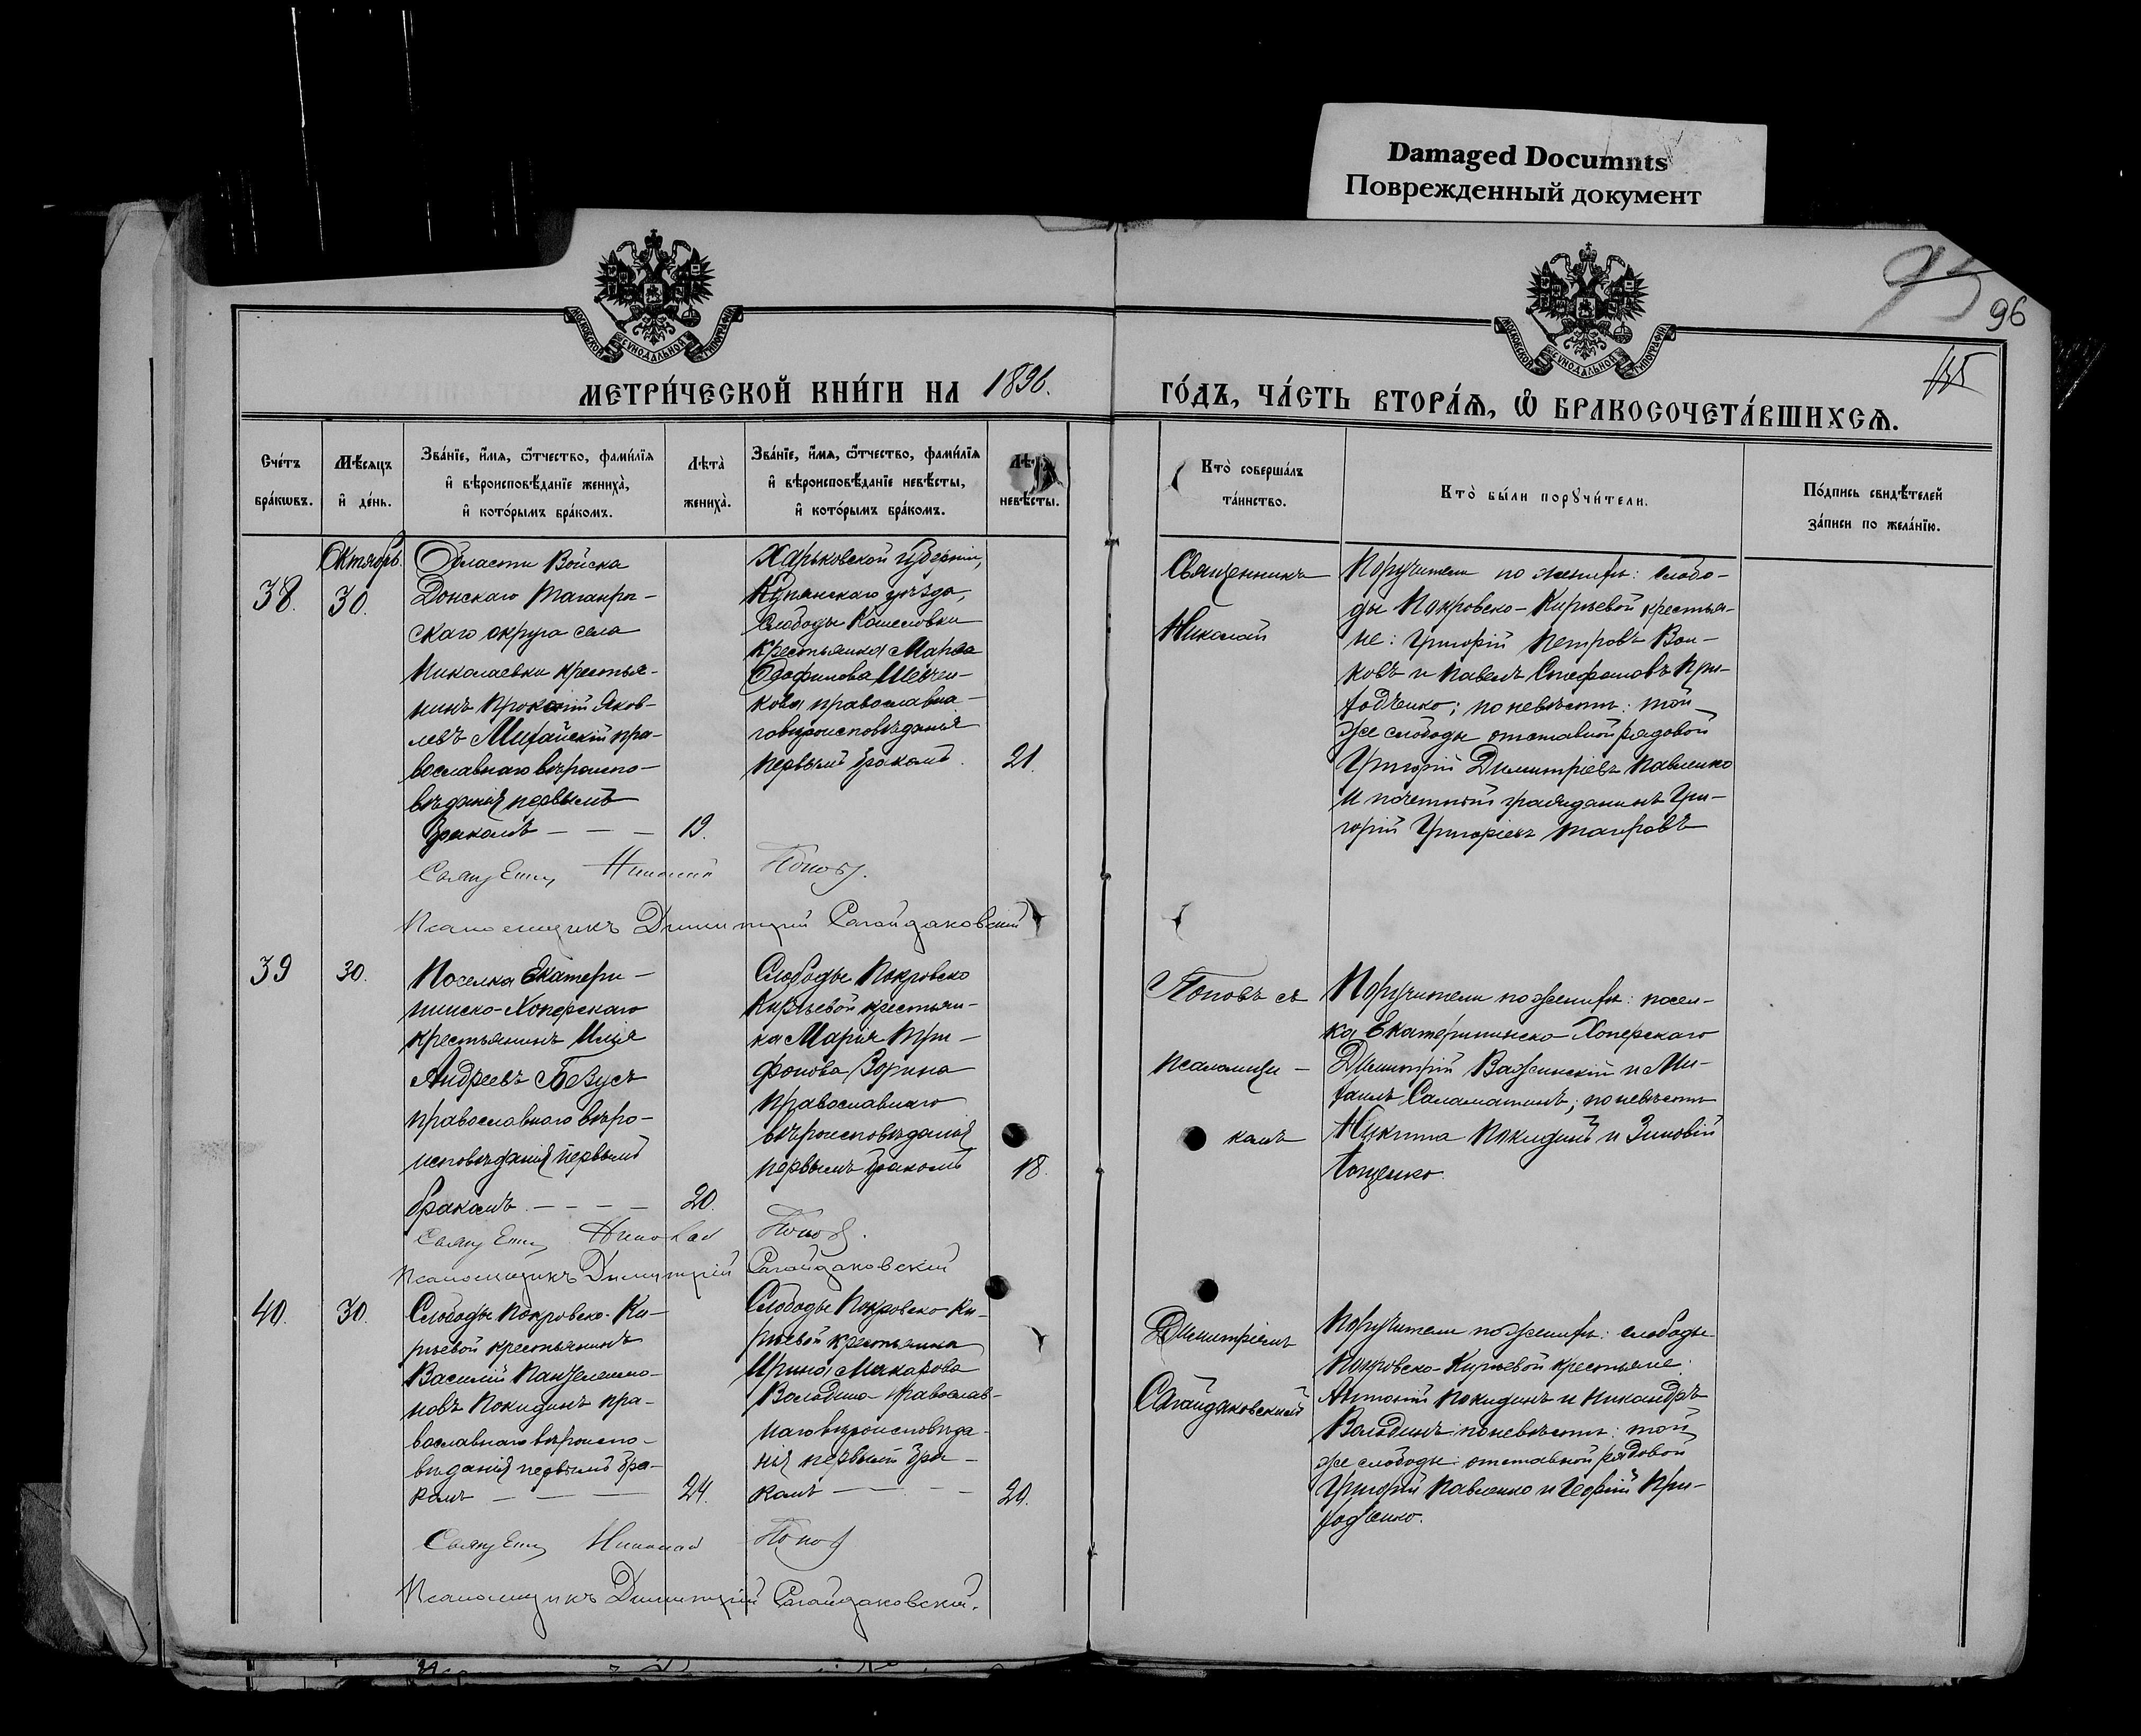 Damaged Documnts
Поврежденный документ
95
96
МОСКОВСКОЙ СѴНОДАЛЬНОЙ ТИПОГРАФІИ
МОСКОВСКОЙ СѴНОДАЛЬНОЙ ТИПОГРАФІИ
МЕТРИ́ЧЕСКОЙ КНИ́ГИ НА 1896.
ГО́ДЪ, ЧА́СТЬ ВТОРА́Ѧ, Ѽ БРАКОСОЧЕТА́ВШИХСѦ.
Сче́тъ бра́кѡвъ.
Мѣ́сяцъ и҆ де́нь.
Зва́нїе, и҆́мѧ, ѻ҆́тчество, фами́лїѧ
и҆ вѣроисповѣ́данїе жениха̀,
и҆ кото́рымъ бра́комъ.
Лѣта̀ жениха̀.
Зва́нїе, и҆́мѧ, ѻ҆́тчество, фами́лїѧ
и҆ вѣроисповѣ́данїе невѣ́сты,
и҆ кото́рымъ бра́комъ.
невѣ́сты.
Кто̀ соверша́лъ
та́инство.
Кто̀ бы́ли порꙋчи́тели.
По́дпись свидѣ́телей
за́писи по жела́нїю.
Октябрь
38.
30.
Области Войска
Донскаго Таганрог-
скаго округа села
Николаевки крестья-
нинъ Яков-
левъ пра-
вославнаго вѣроиспо-
вѣданія первымъ
бракомъ — — —
19.
Харьковской губерніи,
Купянскаго уѣзда,
слободы
крестьянка Марѳа
Шевчен-
кова православна-
го вѣроисповѣданія
первымъ бракомъ.
21.
Священникъ
Николай
Поручители по женихѣ: слобо-
ды Покровско-Кирѣевой крестья-
не: Григорій Петровъ Вол-
ковъ и Павелъ Стефановъ При-
ходченко; по невѣстѣ: той-
же слободы отставной рядовой
Григорій Димитріевъ Павленко
и почетный гражданинъ Гри-
горій Григорьевъ
Священ. Николай Поповъ.
Псаломщикъ Димитрій Сагайдаковскій
39
30.
Поселка Екатери-
нинско-Хоперскаго
крестьянинъ Илія
Андреевъ Бѣвусъ
православнаго вѣро-
исповѣданія первымъ
бракомъ. — — — —
20.
Слободы Покровско
Кирѣевой крестьян-
ка Марія Три-
фонова Зорина
православнаго
вѣроисповѣданія
первымъ бракомъ
18.
Поповъ съ
псаломщи-
комъ
Поручители по женихѣ: посел-
ка Екатерининско-Хоперскаго
Димитрій Важинскій и Ми-
хаилъ Саламатинъ; по невѣстѣ
Никита Покидинъ и Зиновій
Священ. Николай Поповъ.
Псаломщикъ Димитрій Сагайдаковскій
40.
30.
Слободы Покровско-Ки-
рѣевой крестьянинъ
Василій Пантелеимо-
новъ Покидинъ пра-
вославнаго вѣроиспо-
вѣданія первымъ бра-
комъ — — —
24.
Слободы Покровско-Ки-
рѣевой крестьянка
Ирина Макарова
Володина православ-
наго вѣроисповѣда-
нія первымъ бра-
комъ — — —
20.
Димитріемъ
Сагайдаковскимъ
Поручители по женихѣ: слободы
Покровско-Кирѣевой крестьяне:
Антоній Покидинъ и Никандръ
Володинъ; по невѣстѣ: той
же слободы: отставной рядовой
Григорій Павленко и Георгій При-
ходченко.
Священ. Николай Поповъ
Псаломщикъ Димитрій Сагайдаковскій.